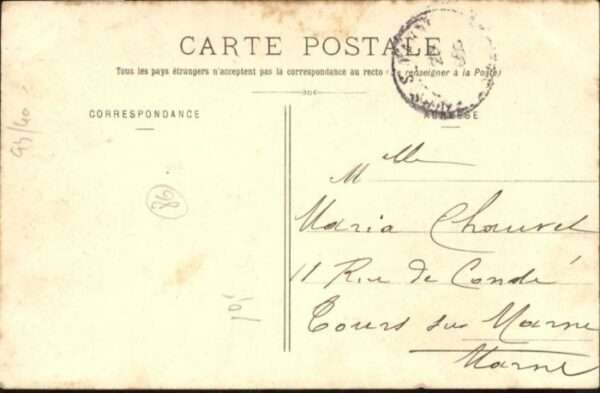 CARTE POSTALE
Tous les pays étrangers n'acceptent pas la correspondance au recto (Se renseigner à la Poste)
CORRESPONDANCE
ADRESSE
M lle
Maria Chauvet
11 Rue de Condé
Tours sur Marne
Marne
93/40
86